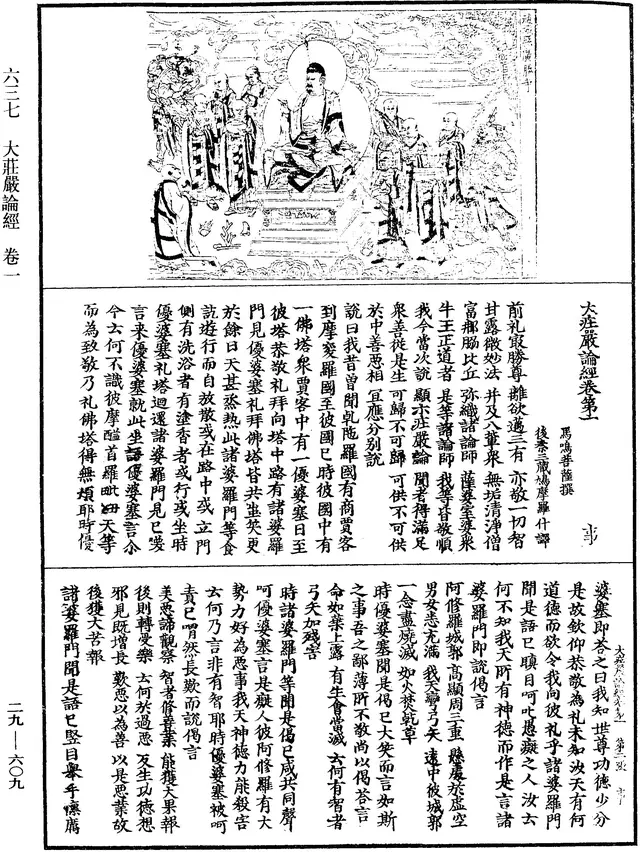 六三七　大莊嚴論經　卷一
二九—六〇九
大莊嚴論經卷第一
馬鳴菩薩撰
後秦三藏鳩摩羅什譯
前礼最勝尊　離欲邁三有　亦敬一切智
甘露微妙法　并及八輩衆　無垢清淨僧
富那脇比丘　弥織諸論師　薩婆室婆衆
牛王正道者　是等諸論師　我等皆敬順
我今當次說　顯示莊嚴論　聞者得滿足
衆善從是生　可歸不可歸　可供不可供
於中善惡相　宜應分別說
說曰我昔曾聞乹陁羅國有商賈客
到摩突羅國至彼國已時彼國中有
一佛塔衆賈客中有一優婆塞日至
彼塔恭敬礼拜向塔中路有諸婆羅
門見優婆塞礼拜佛塔皆共嗤笑更
於餘日天甚烝熱此諸婆羅門等食
訖遊行而自放散或在路中或立門
側有洗浴者有塗香者或行或坐時
優婆塞礼塔迴還諸婆羅門見已喚
言来優婆塞就此坐語優婆塞言尒
今云何不識彼摩醯首羅毗紐天等
而為致敬乃礼佛塔得無煩耶時優
婆塞即荅之曰我知世尊功德少分
是故欽仰恭敬為礼未知汝天有何
道德而欲令我向彼礼乎諸婆羅門
聞是語已瞋目呵叱愚癡之人汝云
何不知我天所有神德而作是言諸
婆羅門即說偈言
阿修羅城郭　高顯周三重　懸處於虛空
男女悉充滿　我天彎弓矢　遠中彼城郭
一念盡燒滅　如火焚乹草
時優婆塞聞是偈已大笑而言如斯
之事吾之鄙薄所不敬尚以偈荅言
命如葉上露　有生會當滅　云何有智者
弓矢加殘害
時諸婆羅門等聞是偈已咸共同聲
呵優婆塞言是癡人彼阿修羅有大
勢力好為惡事我天神德力能殺害
云何乃言非有智耶時優婆塞被呵
責已喟然長歎而說偈言
美惡諦觀察　智者修善業　能獲大果報
後則轉受樂　云何於過惡　反生功德想
邪見既增長　歎惡以為善　以是惡業故
後獲大苦報
諸婆羅門聞是語已竪目舉手懍厲